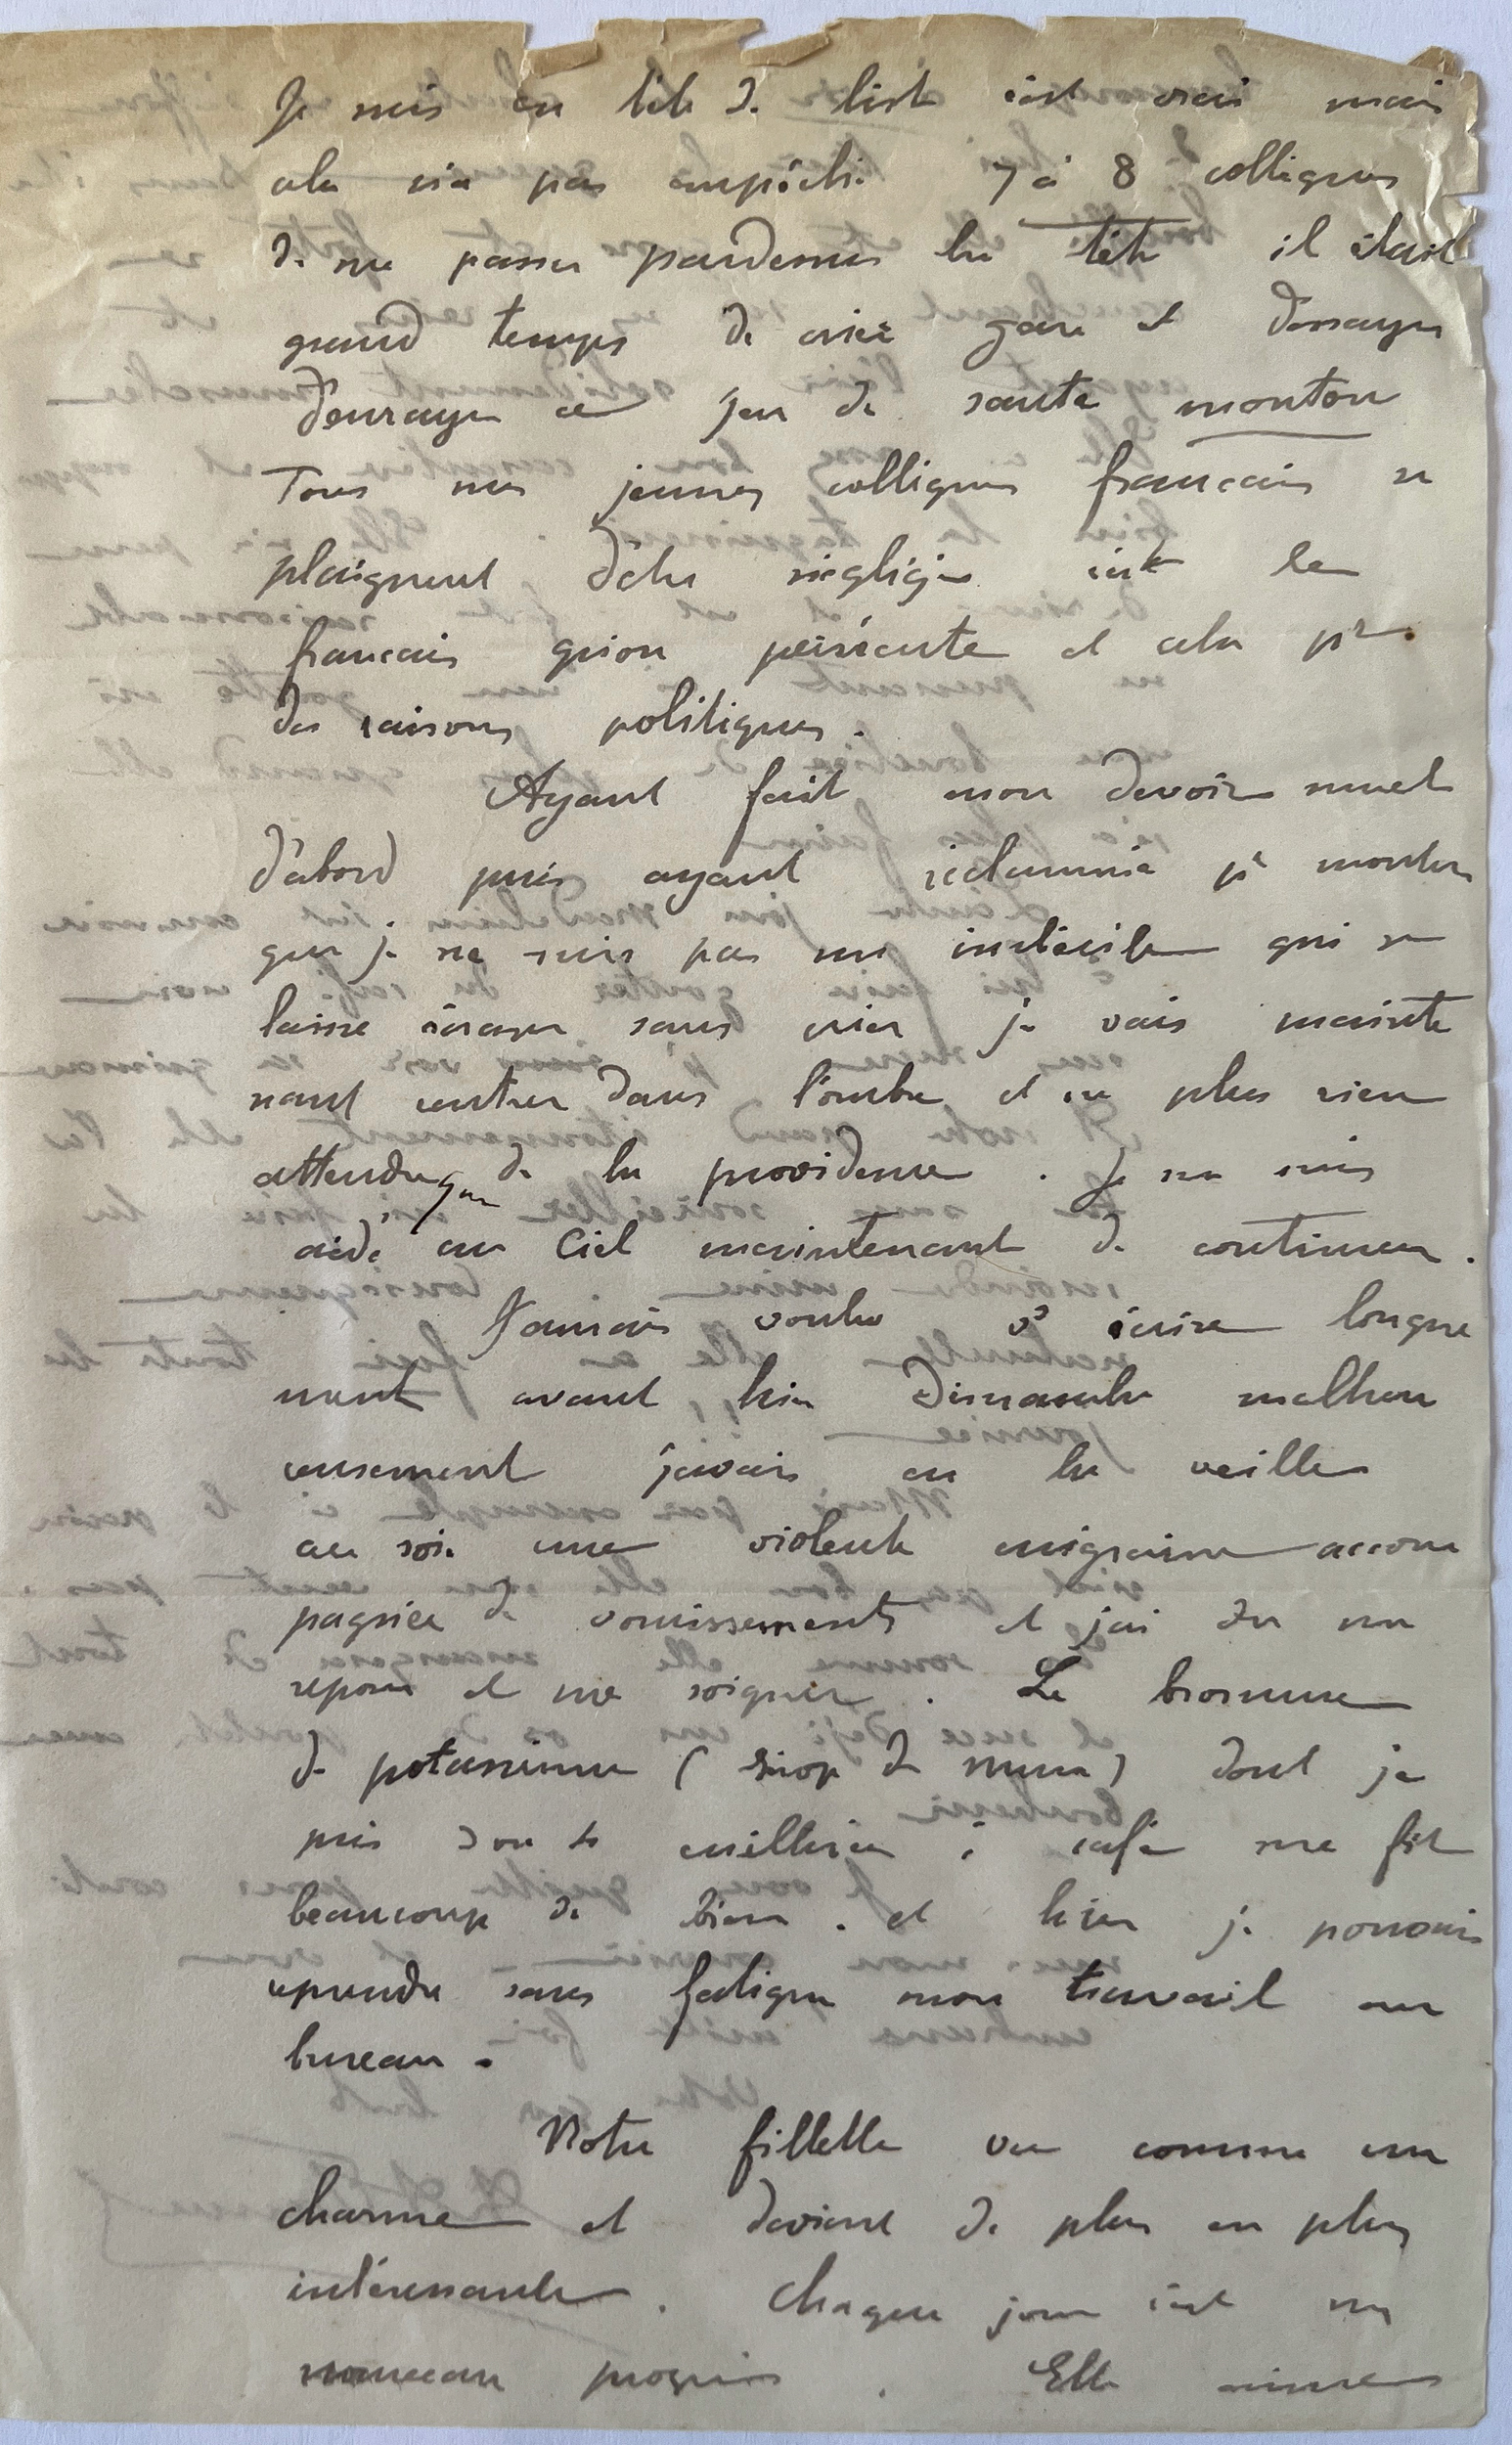 Je suis en tête de liste c'est vrai mais
cela n'a pas empêché 7 à 8 collègues
de me passer pardessus la tête il était
grand temps de crier gare et d'essayer
d'enrayer ce jeu de saute mouton
Tous mes jeunes collègues francais se
plaignent d'être négligés c'est le
francais qu'on persécute et cela pr
des raisons politiques.
Ayant fait mon devoir muet
d'abord puis ayant réclammé pr montrer
que je ne suis pas un imbécile qui se
laisse écraser sans crier je vais mainte
nant rentrer dans l'ombre et ne plus rien
attendre que de la providence. Je me suis
aidé au Ciel maintenant de continuer.
J'aurais voulu vs écrire longue
ment avant hier Dimanche malheu
reusement j'avais eu la veille
au soir une violente migraine accom
pagnée de vomissements et j'ai du me
reposer et me soigner. Le bromure
de potassium (sirop de ) dont je
pris cuillères à café me fit
beaucoup de bien. et hier je pouvais
reprendre sans fatigue mon travail au
bureau.
Notre fillette va comme un
charme et devient de plus en plus
intéressante. Chaque jour c'est un
nouveau progrès. Elle aime